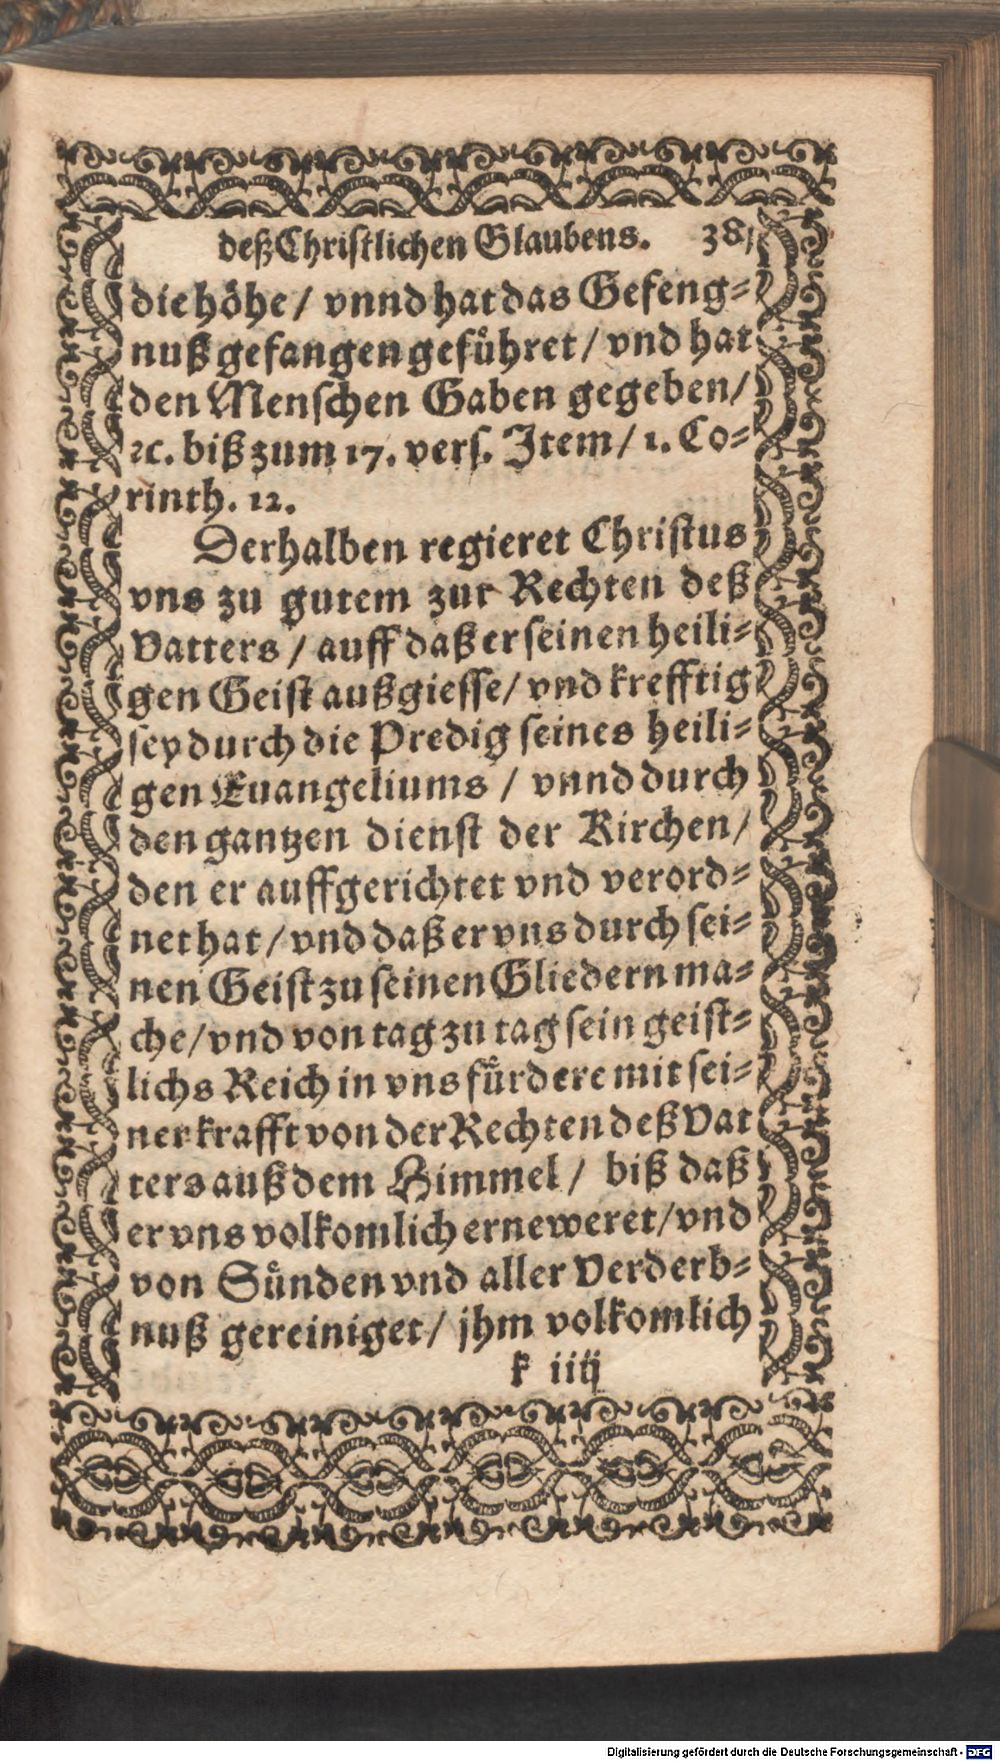 deß Christlichen Glaubens. 38
die höhe / vnnd hat das Gefeng⸗
nuß gefangen gefuͤhret / vnd hat
den Menschen Gaben gegeben /
ꝛc. biß zum 17. vers. Item / 1. Co⸗
rinth. 12.
Derhalben regieret Christus
vns zu gutem zur Rechten deß
Vatters / auff daß er seinen heili⸗
gen Geist außgiesse / vnd krefftig
sey durch die Predig seines heili⸗
gen Euangeliums / vnnd durch
den gantzen dienst der Kirchen /
den er auffgerichtet vnd verord⸗
net hat / vnd daß er vns durch sei⸗
nen Geist zu seinen Gliedern ma⸗
che / vnd von tag zu tag sein geist⸗
lichs Reich in vns fuͤrdere mit sei⸗
ner krafft von der Rechten deß Vat
ters auß dem Himmel / biß daß
er vns volkomlich erneweret / vnd
von Suͤnden vnd aller Verderb⸗
nuß gereiniget / jhm volkomlich
k iiij
Digitalisierung gefördert durch die Deutsche Forschungsgemeinschaft - DFG